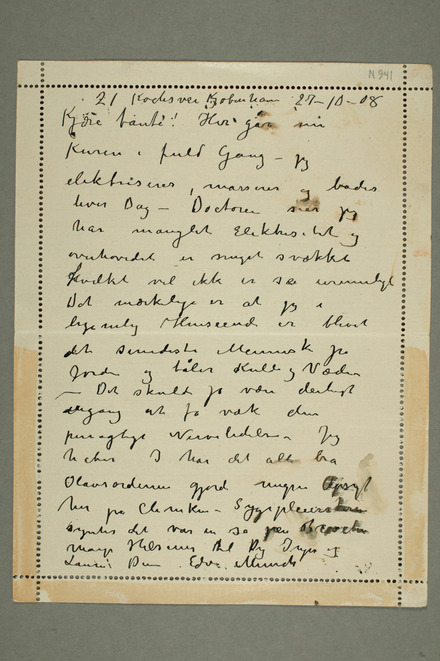 N 941
21 Kochsvei Kjøbenhavn 27-10-08
Kjære tante! Her går nu
Kuren i fuld Gang – jeg
elektriseres, masseres og bades
hver Dag – Doctoren sier jeg
har manglet Elektricitet og
overhovedet er meget svækket
Hvilket vel ikke er så urimeligt
Det mærkelige er at jeg i
legemlig Henseende er blevet
det sundeste Menneske på
Jorden og tåler Kulde og Væde
– Det skulde jo være deiligt
engang at få væk den
Nervelidelse – Jeg
håber I har det alle bra
Olavsordenen gjord megen Opsigt
her på Cliniken – Sygepleiersken
syntes det var en så pen Broche
mange Hilsener til Dig Inger og
Laura Din Edv. Munch